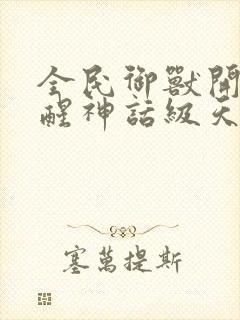 全民御獸開
醒神話級天
塞萬提斯